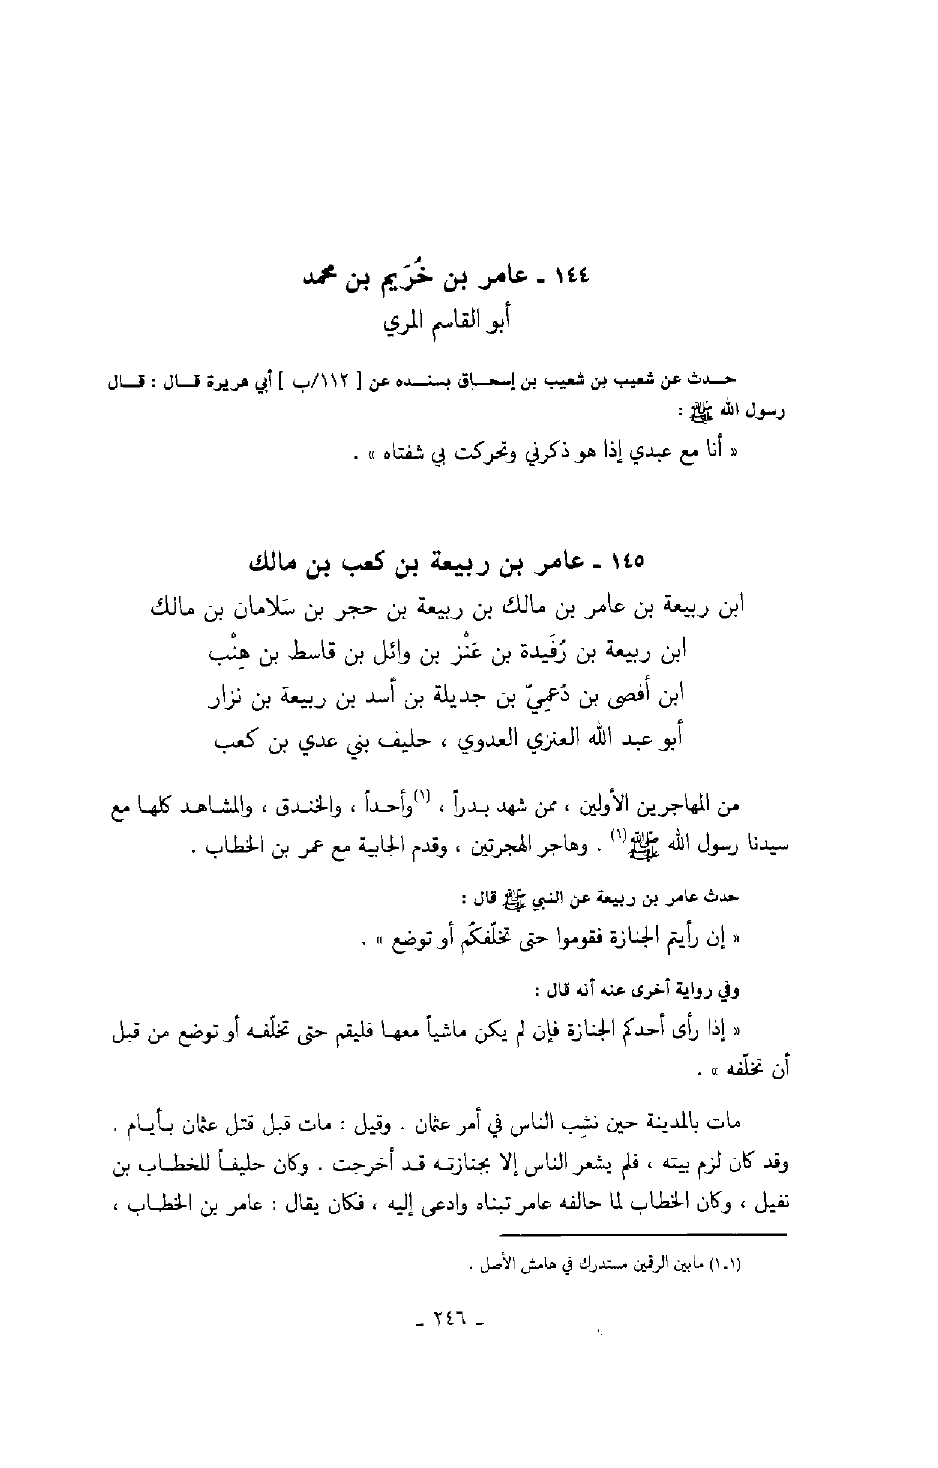 ١٤٤ ـ عامر بن خُرَيم بن محمد
أبو القاسم المري
حـدث عن شعيب بن شعيب بن إسحـاق بسنـده عن [ ١١٢/ب ] أبي هريرة قـال : قـال
رسول الله ﷺ :
« أنا مع عبدي إذا هو ذكرني وتحركت بي شفتاه » .
١٤٥ ـ عامر بن ربيعة بن كعب بن مالك
ابن ربيعة بن عامر بن مالك بن ربيعة بن حجر بن سَلامان بن مالك
ابن ربيعة بن رُفَيدة بن عَنْز بن وائل بن قاسط بن هِنْب
ابن أفصى بن دُعميّ بن جديلة بن أسد بن ربيعة بن نزار
أبو عبد الله العنزي العدوي ، حليف بني عدي بن كعب
من المهاجرين الأولين ، ممن شهد بـدراً ، (١)وأحـداً ، والخنـدق ، والمشاهـد كلهـا مع
سيدنا رسول الله ﷺ(١) . وهاجر الهجرتين ، وقدم الجابية مع عمر بن الخطاب .
حدث عامر بن ربيعة عن النبي ﷺ قال :
« إن رأيتم الجنازة فقوموا حتى تخلّفكُم أو توضع » .
وفي رواية أخرى عنه أنه قال :
« إذا رأى أحدكم الجنازة فإن لم يكن ماشياً معهـا فليقم حتى تخلّفـه أو توضع من قبل
أن تخلّفه » .
مات بالمدينة حين نشِب النـاس في أمر عثمان . وقيل : مـات قبل قتل عثمان بـأيـام .
وقد كان لزم بيته ، فلم يشعر الناس إلا بجنازتـه قـد أخرجت . وكان حليفـاً للخطـاب بن
نفيل ، وكان الخطاب لما حالفه عامر تبناه وادعى إليه ، فكان يقال : عامر بن الخطـاب ،
(١ـ١) مابين الرقمين مستدرك في هامش الأصل .
ـ ٢٤٦ ـ